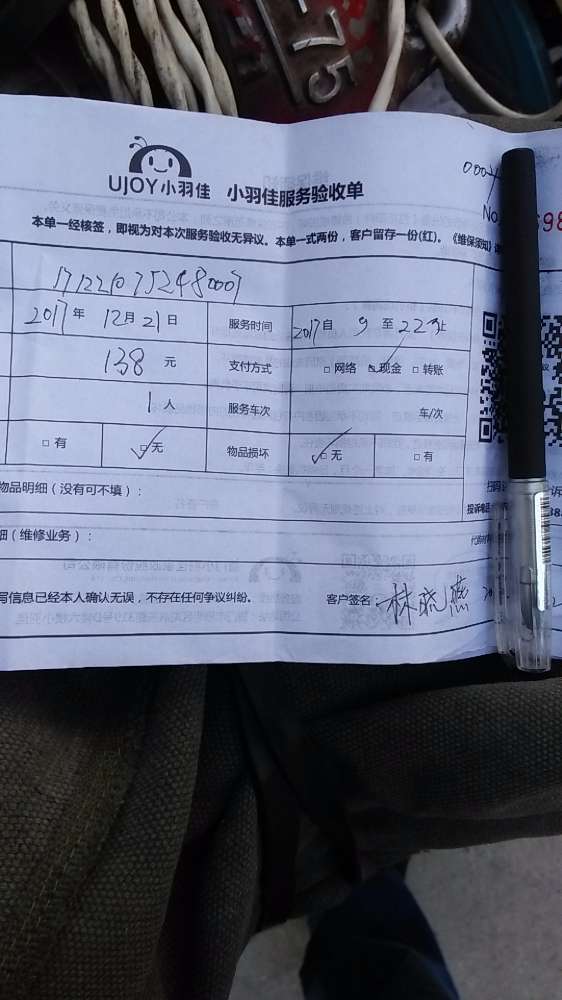 -75
UJOY小羽佳 小羽佳服务验收单
0004
No. 698
本单一经核签，即视为对本次服务验收无异议。本单一式两份，客户留存一份(红)。《维保须知》
1712210752480007
2017年 12月21日 服务时间 2017自 9 至 22 止
138 元 支付方式 □网络 ☑现金 □转账
1人 服务车次 车/次
□有 ☑无 物品损坏 ☑无 □有
物品明细（没有可不填）：
扫码
投诉电话
细（维修业务）：
写信息已经本人确认无误，不存在任何争议纠纷。 客户签名：林晓燕 20